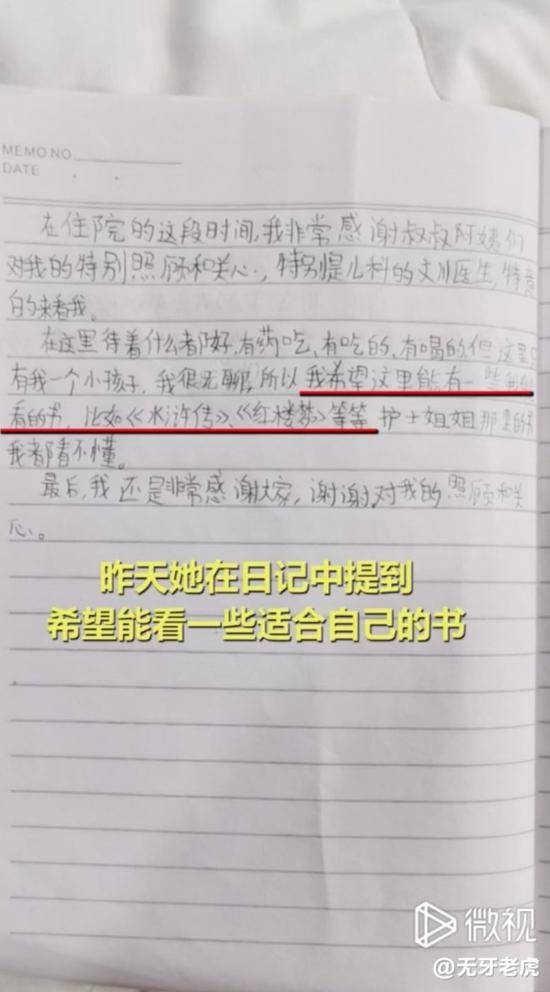 MEMO NO.
DATE
在住院的这段时间,我非常感谢叔叔阿姨们
对我的特别照顾和关心,特别是儿科的文川医生,特意
的来看我。
在这里待着什么都好,有药吃、有吃的、有喝的,但这里
有我一个小孩子,我很无聊,所以我希望这里能有一些我
看的书,比如《水浒传》、《红楼梦》等等 护士姐姐那里的书
我都看不懂。
最后,我还是非常感谢大家,谢谢对我的照顾和关
心。
昨天她在日记中提到
希望能看一些适合自己的书
微视
@无牙老虎